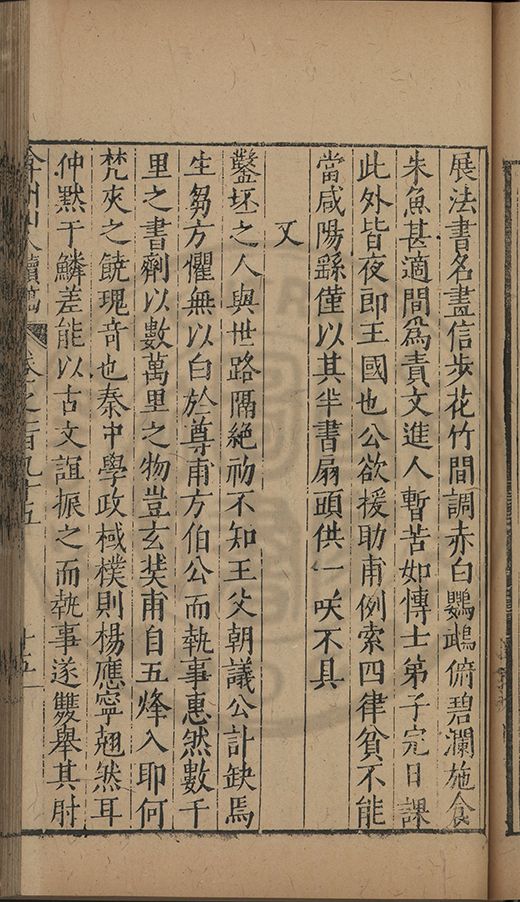 展法書名畫信步花竹間調赤白鸚鵡俯碧瀾施食
朱魚甚適間為責文進人暫苦如博士弟子完日課
此外皆夜郎王國也公欲援助甫例索四律貧不能
當咸陽繇僅以其半書扇頭供一咲不具
又
鑿坯之人與世路隔絶初不知王父朝議公計缺焉
生芻方懼無以白於尊甫方伯公而執事惠然數千
里之書劑以數萬里之物豈玄奘甫自五烽入耶何
梵夾之饒瑰奇也秦中學政棫樸則楊應寧翹然耳
仲黙于鱗差能以古文誼振之而執事遂雙舉其肘
弇州山人續稿 卷之一百九十五 十五